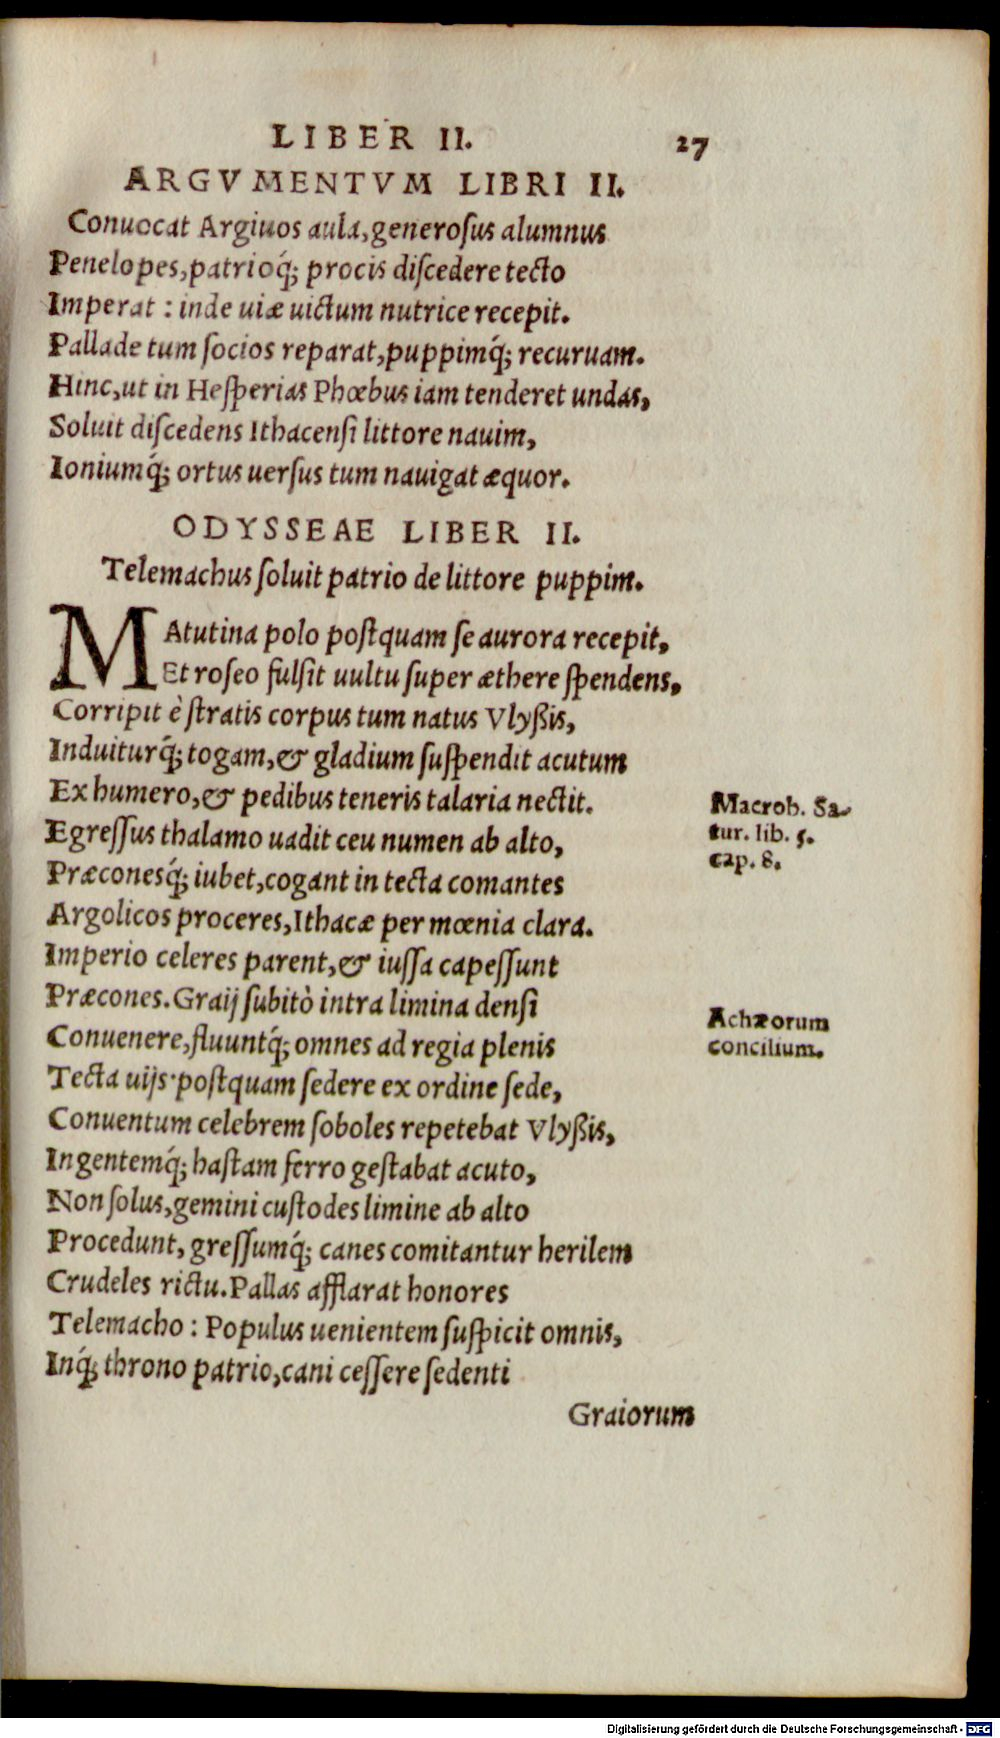 LIBER II. 27
ARGVMENTVM LIBRI II.
Conuocat Argiuos aula, generoſus alumnus
Penelopes, patrioq́; procis diſcedere tecto
Imperat : inde uiæ uictum nutrice recepit.
Pallade tum ſocios reparat, puppimq́; recuruam.
Hinc, ut in Heſperias Phœbus iam tenderet undas,
Soluit diſcedens Ithacenſi littore nauim,
Ioniumq́; ortus uerſus tum nauigat æquor.
ODYSSEAE LIBER II.
Telemachus ſoluit patrio de littore puppim.
MAtutina polo poſtquam ſe aurora recepit,
Et roſeo fulſit uultu ſuper æthere ſpendens,
Corripit è ſtratis corpus tum natus Vlyßis,
Induiturq́; togam, & gladium ſuſpendit acutum
Ex humero, & pedibus teneris talaria nectit.
Macrob. Sa-
tur. lib. 5.
cap. 8.
Egreſſus thalamo uadit ceu numen ab alto,
Præconesq́; iubet, cogant in tecta comantes
Argolicos proceres, Ithacæ per mœnia clara.
Imperio celeres parent, & iuſſa capeſſunt
Præcones. Graij ſubitò intra limina denſi
Achæorum
concilium.
Conuenere, fluuntq́; omnes ad regia plenis
Tecta uijs· poſtquam ſedere ex ordine ſede,
Conuentum celebrem ſoboles repetebat Vlyßis,
Ingentemq́; haſtam ferro geſtabat acuto,
Non ſolus, gemini cuſtodes limine ab alto
Procedunt, greſſumq́; canes comitantur herilem
Crudeles rictu. Pallas afflarat honores
Telemacho : Populus uenientem ſuſpicit omnis,
Inq́; throno patrio, cani ceſſere ſedenti
Graiorum
Digitalisierung gefördert durch die Deutsche Forschungsgemeinschaft - DFG